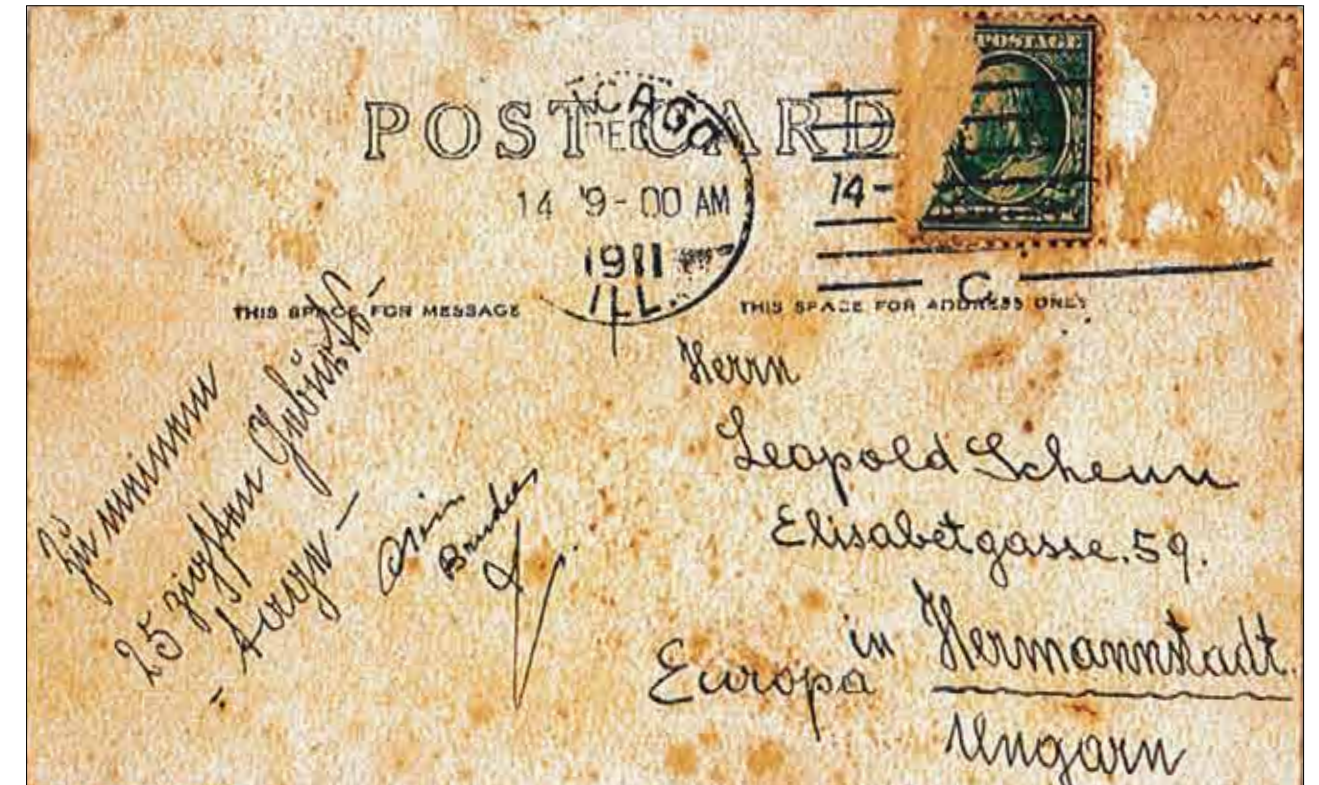 POSTAGE
POST CARD
CAGO
DEC
14 9-00 AM
1911
ILL.
14-
C
THIS SPACE FOR MESSAGE
THIS SPACE FOR ADDRESS ONLY
Zu meinem
25 zigsten Geburts-
- tage -
Dein
Bruder
Herrn
Leopold Schenn
Elisabetgasse.59.
in Hermannstadt.
Europa
Ungarn